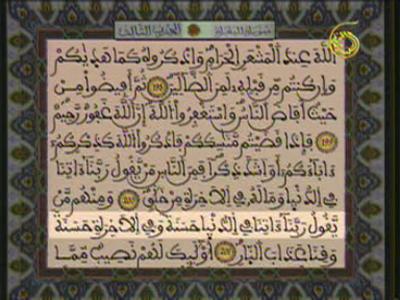 سورة البقرة الحزب الثالث
اللَّهَ عِندَ الْمَشْعَرِ الْحَرَامِ وَاذْكُرُوهُ كَمَا هَدَيٰكُمْ
وَإِن كُنتُم مِّن قَبْلِهِ لَمِنَ الضَّالِّينَ ثُمَّ أَفِيضُوا مِنْ
حَيْثُ أَفَاضَ النَّاسُ وَاسْتَغْفِرُوا اللَّهَ إِنَّ اللَّهَ غَفُورٌ رَّحِيمٌ
فَإِذَا قَضَيْتُم مَّنَاسِكَكُمْ فَاذْكُرُوا اللَّهَ كَذِكْرِكُمْ
ءَابَاءَكُمْ أَوْ أَشَدَّ ذِكْرًا فَمِنَ النَّاسِ مَنْ يَقُولُ رَبَّنَا ءَاتِنَا
فِي الدُّنْيَا وَمَا لَهُ فِي الَاخِرَةِ مِنْ خَلَٰقٍ وَمِنْهُم مَّنْ
يَقُولُ رَبَّنَا ءَاتِنَا فِي الدُّنْيَا حَسَنَةً وَفِي الَاخِرَةِ حَسَنَةً
وَقِنَا عَذَابَ النَّارِ أُوْلَٰئِكَ لَهُمْ نَصِيبٌ مِّمَّا